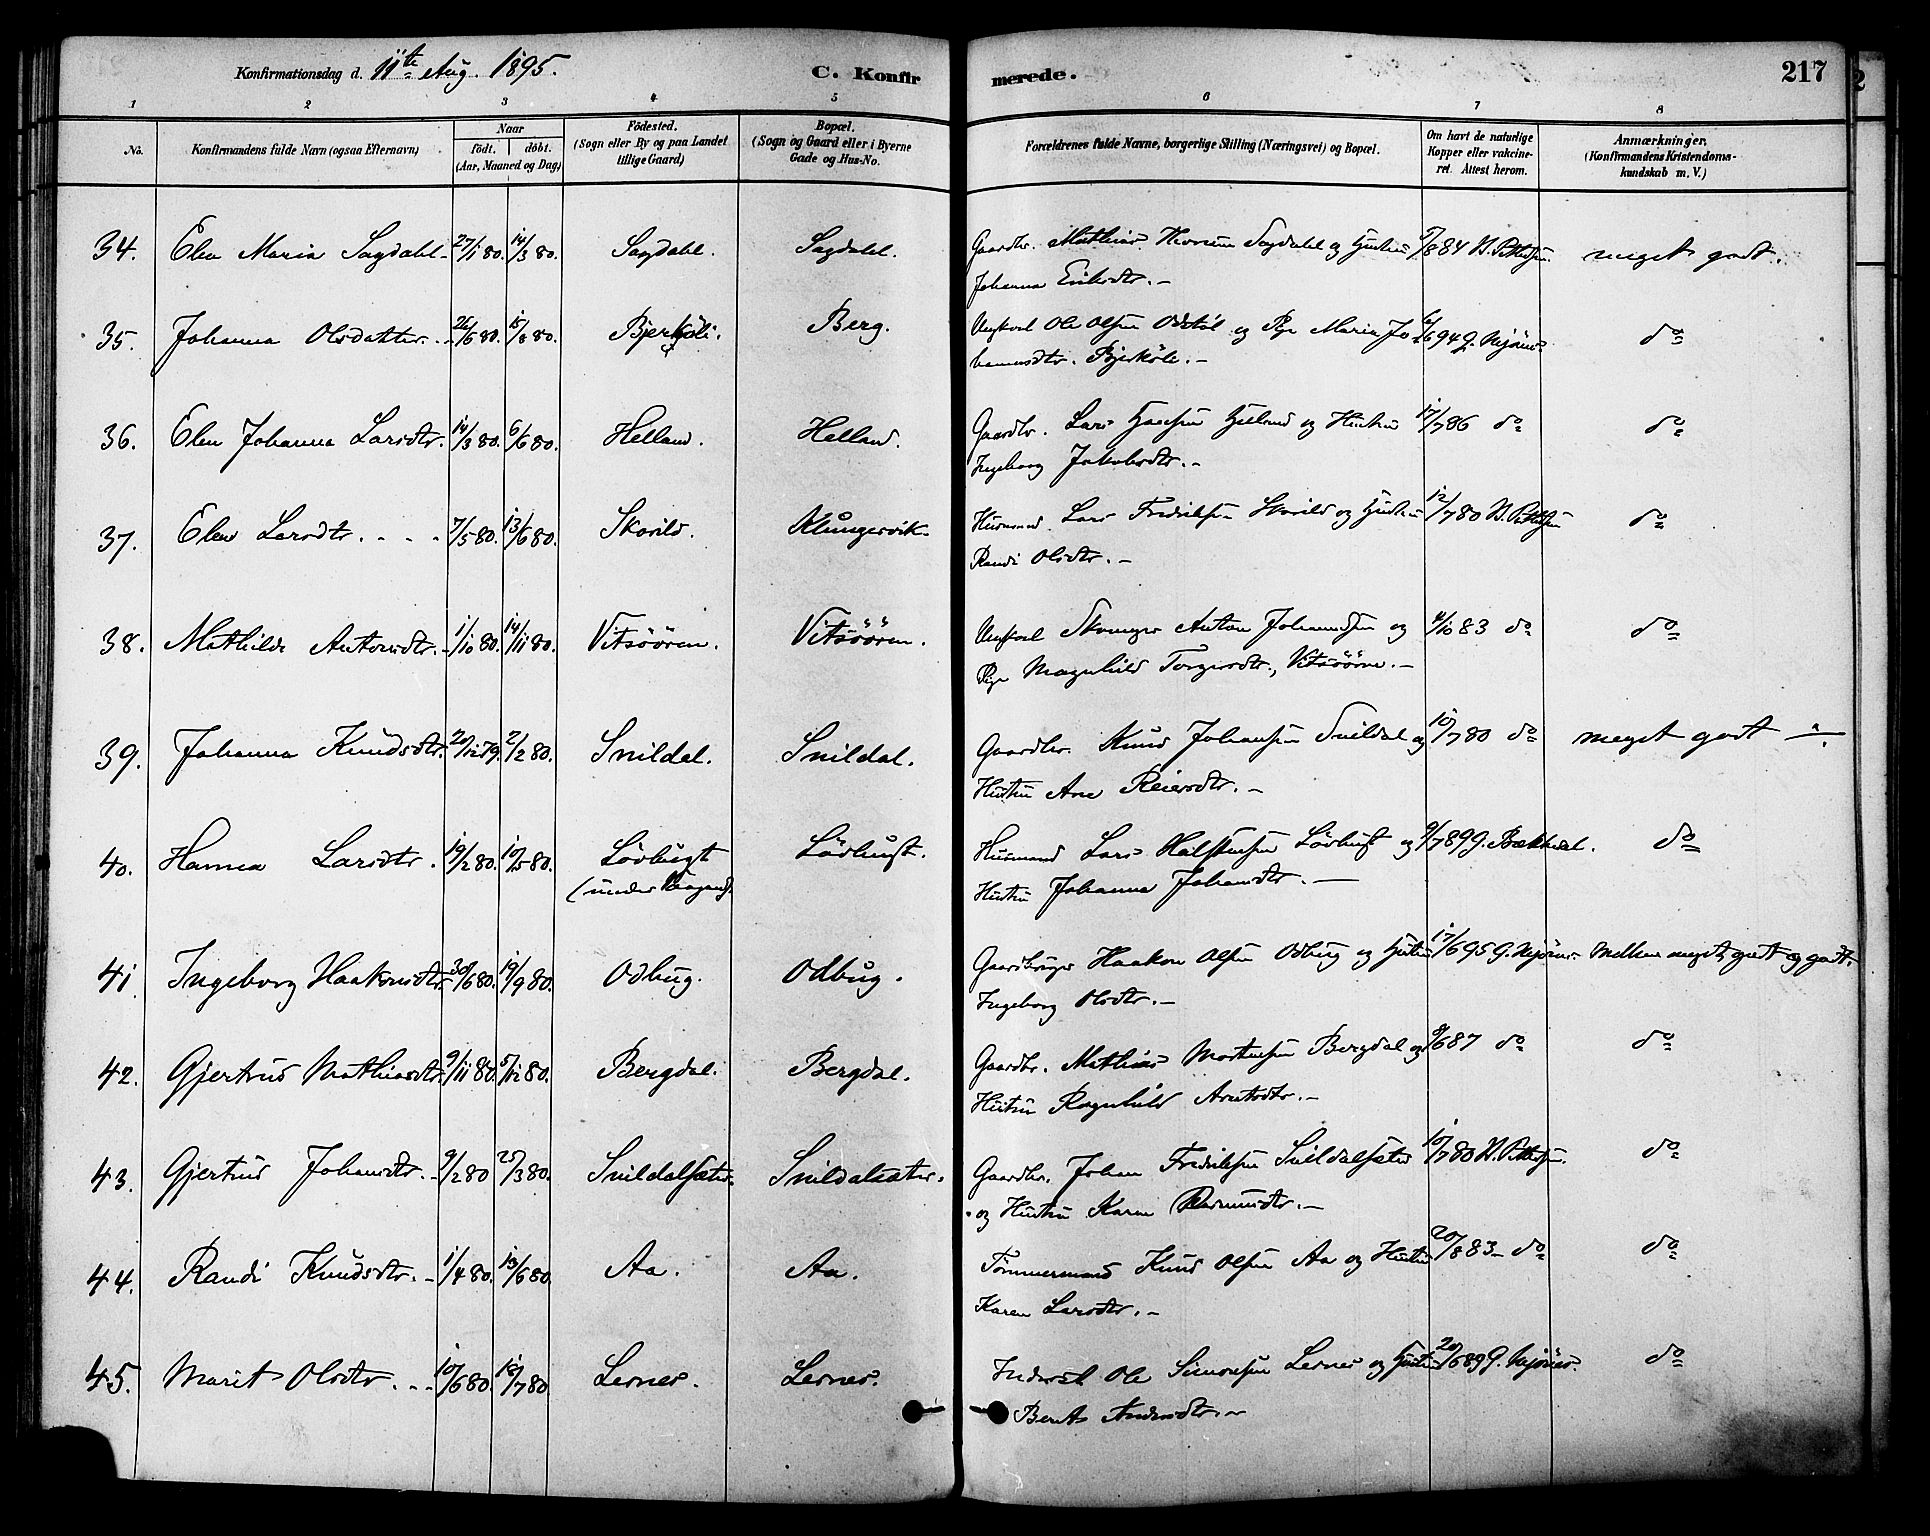 Konfirmationsdag d. 11te Aug. 1895.
C. Konfir
merede.
217
1 2 3 4 5 6 7 8
No.
Konfirmandens fulde Navn (ogsaa Efternavn)
Naar
födt. döbt.
(Aar, Maaned og Dag)
Födested.
(Sogn eller By og paa Landet
tillige Gaard)
Bopæl.
(Sogn og Gaard eller i Byerne
Gade og Hus-No.
Forældrenes fulde Navne, borgerlige Stilling (Næringsvei) og Bopæl.
Om havt de naturlige
Kopper eller vakcine-
ret. Attest herom.
Anmærkninger.
(Konfirmandens Kristendoms-
kundskab m. V.)
34. Elen Maria Sagdahl. 27/1 80. 14/3 80. Sagdahl. Sagdahl. Gaardbr. Mathias Sagdahl og Hustru 84 meget godt.
Johanna Eriksdtr. -
35. Johanna Olsdatter. 26/6 80. 15/8 80. Bjerköli. Berg. Ungkarl Ole Olsen og Pige Maria Jo- 94 do
hannesdtr. Bjerköli. -
36. Elen Johanna Larsdtr. 14/3 80. 6/6 80. Helland. Helland. Gaardbr. Lars og Hustru 17/7 86 do do
Ingeborg Jakobsdtr. -
37. Elen Larsdtr. 7/5 80. 13/6 80. Skorild. Klungervik. Husmand Lars Fredriksen Skorild og Hustru 12/7 80 do
Randi Olsdtr. -
38. Mathilde Antonsdtr. 1/10 80. 14/11 80. Vitsöören. Vitsöören. Ungkarl Anton Johannesen og 4/10 83 do do
Pige Magnhild Torgersdtr., Vitsöören. -
39. Johanna Knudsdtr. 20/12 79. 2/2 80. Snildal. Snildal. Gaardbr. Knud Johansen Snildal og 10/7 80 do meget godt
Hustru Ane Reiersdtr. -
40. Hanna Larsdtr. 19/2 80. 10/5 80. Lövbugt Lövbugt. Husmand Lars Lövbugt og 9/7 89 do
(under Hustru Johanna Johansdtr. -
41. Ingeborg Haakonsdtr. 30/6 80. 19/9 80. Odbug. Odbug. Gaardbruger Haakon Olsen Odbug og Hustru 17/6 95 Mellem meget godt og godt.
Ingeborg Olsdtr. -
42. Gjertrud Mathiasdtr. 9/11 80. 5/12 80. Bergdal. Bergdal. Gaardbr. Mathias Mortensen Bergdal og 87 do do
Hustru Ragnhild Arntsdtr. -
43. Gjertrud Johansdtr. 9/2 80 25/3 80. Snildalsæter. Snildalsæter. Gaardbr. Johan Fredriksen Snildalsæter 10/7 80 do
og Hustru Karen Rasmusdtr. -
44. Randi Knudsdtr. 1/4 80. 13/6 80. Aa. Aa. Tömmermand Knud Olsen Aa og Hustru 20/8 83 do do
Karen Larsdtr. -
45. Marit Olsdtr. 10/6 80. 18/7 80 Lernes. Lernes. Inderst Ole Simonsen Lernes og Hustru 20/6 89 do
Berit Andersdtr. -